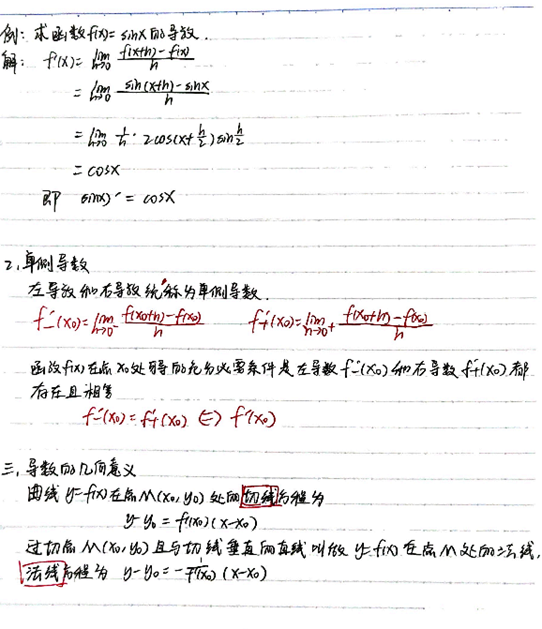 例: 求函数f(x)= sinx的导数.
解: f'(x)= lim h→0 f(x+h)-f(x) / h
= lim h→0 sin(x+h)-sinx / h
= lim h→0 1/h · 2cos(x+h/2)sin h/2
= cosx
即 sin(x)' = cosx
2, 单侧导数
左导数和右导数统称为单侧导数.
f'-(x0)= lim h→0- f(x0+h)-f(x0) / h f'+(x0)= lim h→0+ f(x0+h)-f(x0) / h
函数f(x)在点x0处可导的充分必要条件是左导数f'-(x0)和右导数f'+(x0)都
存在且相等
f'-(x0)= f'+(x0) ⇔ f'(x0)
三, 导数的几何意义
曲线y=f(x)在点M(x0, y0)处的切线方程为
y-y0 = f'(x0)(x-x0)
过切点M(x0, y0)且与切线垂直的直线叫做y=f(x)在点M处的法线,
法线方程为 y-y0=-1/f'(x0) (x-x0)